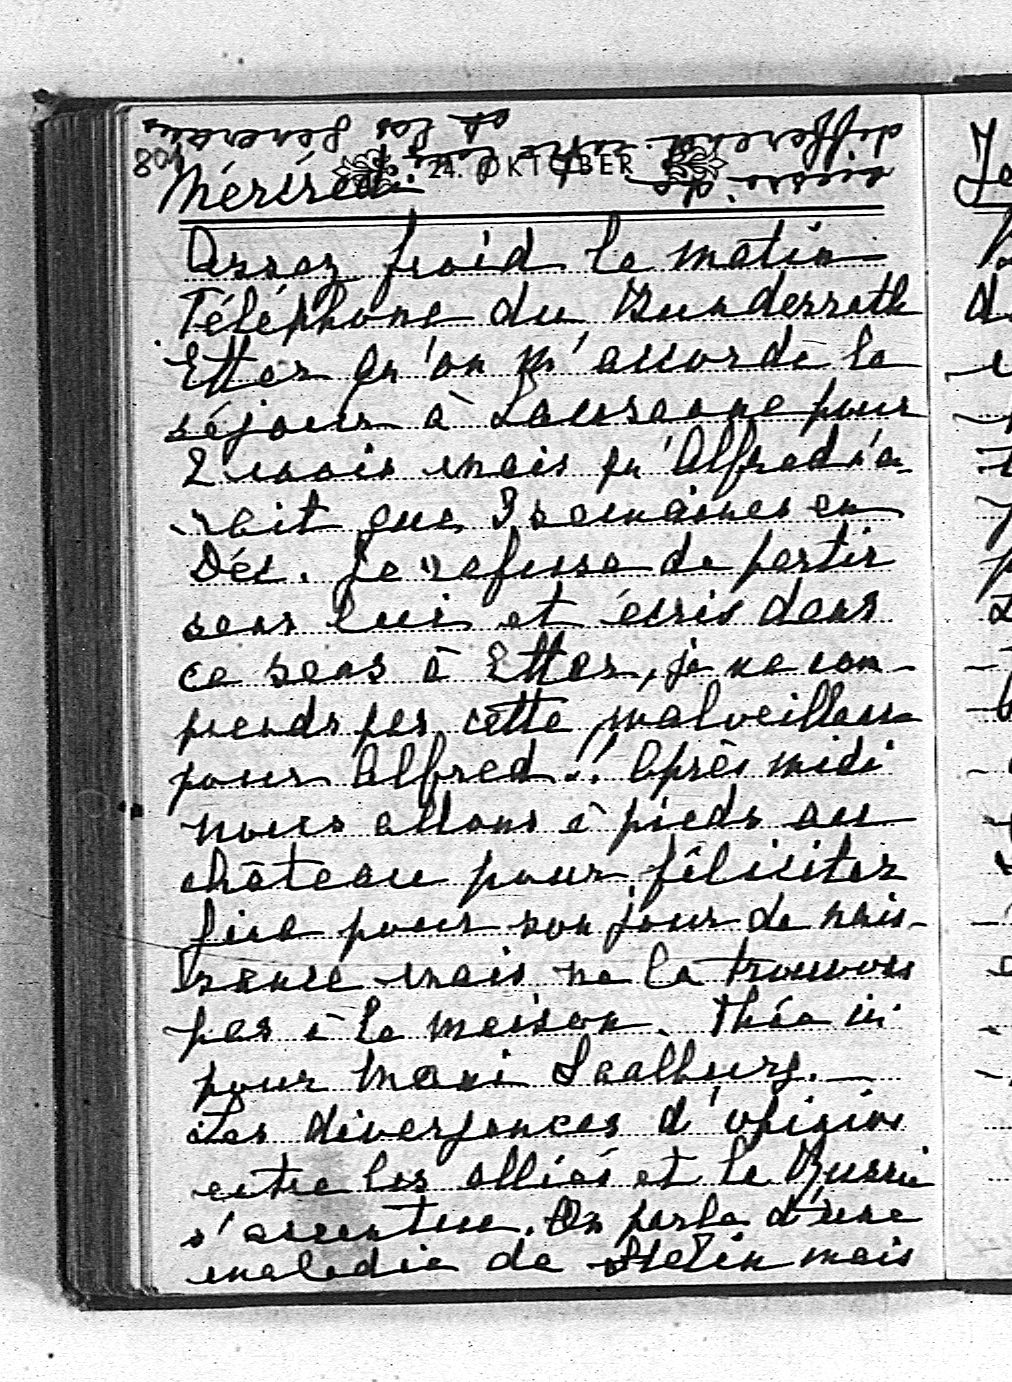 801
24. OKTOBER
Mércredi
Assez froid le matin
Téléphone du Bundesrath
Etter qu'on m'accorde le
séjour à Lausanne pour
2 mois mais qu'Alfred n'au-
rait que 3 semaines en
Déc. Je refuse de partir
sans lui et écris dans
ce sens à Etter, je ne com-
prends pas cette malveillance
pour Alfred!! Après midi
nous allons à pieds au
château pour féliciter
Gina pour son jour de nais-
sance mais ne la trouvons
pas à la maison. Théa ici
pour Maxi Saalburg.
Les divergences d'opinion
entre les alliés et la Russie
s'accentue. On parle d'une
maladie de Stalin mais
aussi de
différend entre lui
et les générais